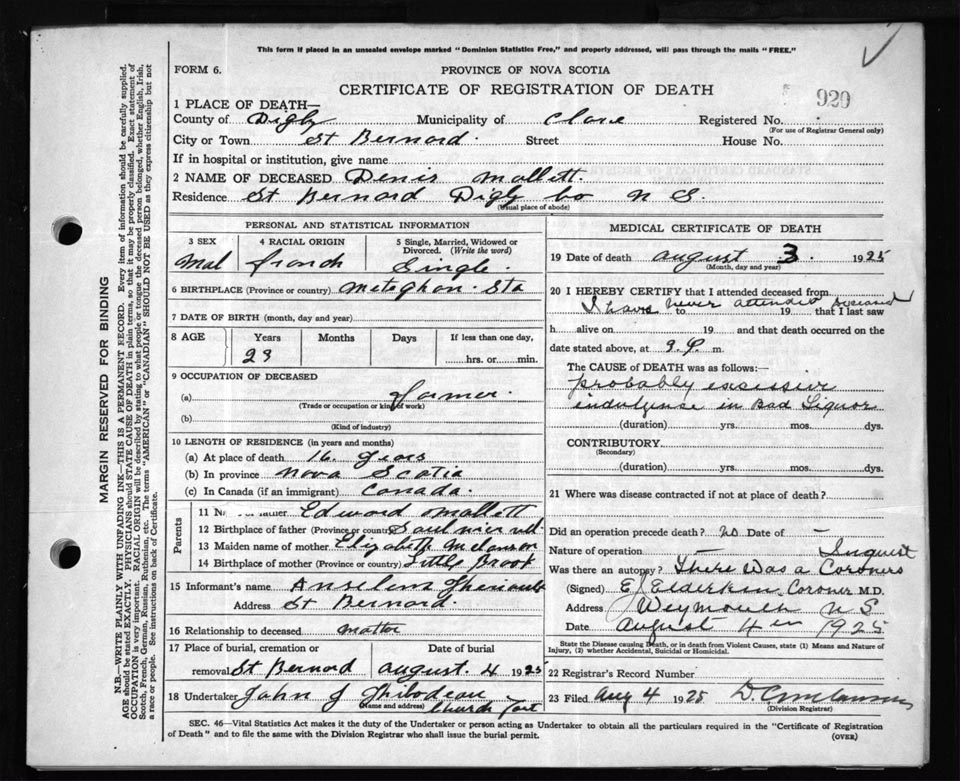 This form if placed in an unsealed envelope marked "Dominion Statistics Free," and properly addressed, will pass through the mails "FREE."
FORM 6.
PROVINCE OF NOVA SCOTIA
CERTIFICATE OF REGISTRATION OF DEATH
920
1 PLACE OF DEATH—
County of Digby Municipality of Clare Registered No.
(For use of Registrar General only)
City or Town St Bernard. Street House No.
If in hospital or institution, give name
2 NAME OF DECEASED Denis Mallett.
Residence St Bernard Digby Co N S.
(Usual place of abode)
PERSONAL AND STATISTICAL INFORMATION
3 SEX
Mal
4 RACIAL ORIGIN
french
5 Single, Married, Widowed or
Divorced. (Write the word)
Single.
6 BIRTHPLACE (Province or country) Meteghan Sta
7 DATE OF BIRTH (month, day and year)
8 AGE Years Months Days If less than one day,
23 hrs. or min.
9 OCCUPATION OF DECEASED
(a) farmer.
(Trade or occupation or kind of work)
(b)
(Kind of industry)
10 LENGTH OF RESIDENCE (in years and months)
(a) At place of death 16. years
(b) In province Nova Scotia
(c) In Canada (if an immigrant) Canada.
Parents
11 Name of father Edward Mallett
12 Birthplace of father (Province or country) Saulnier vil
13 Maiden name of mother Elizabeth Melanson
14 Birthplace of mother (Province or country) Little Brook
15 Informant's name Anselem Theriault
Address St Bernard.
16 Relationship to deceased
17 Place of burial, cremation or Date of burial
removal St Bernard August. 4 1925
18 Undertaker John J Thibodeau
(Name and address) Church Point
MEDICAL CERTIFICATE OF DEATH
19 Date of death August 3. 1925
(Month, day and year)
20 I HEREBY CERTIFY that I attended deceased from
I have never attended deceased
to 19 that I last saw
h alive on 19 and that death occurred on
date stated above, at 9 P. m.
The CAUSE of DEATH was as follows:—
probably excessive
indulgense in Bad Liquor
(duration) yrs. mos. dys.
CONTRIBUTORY.
(Secondary)
(duration) yrs. mos. dys.
21 Where was disease contracted if not at place of death?
Did an operation precede death? No Date of —
Nature of operation —
Inquest
Was there an autopsy? There Was a Coroners
(Signed) E Elderkin Coroner M.D.
Address Weymouth N S
Date August 4th 1925
State the Disease causing Death, or in death from Violent Causes, state (1) Means and Nature of
Injury, (2) whether Accidental, Suicidal or Homicidal.
22 Registrar's Record Number
23 Filed Aug 4 1925
(Division Registrar)
SEC. 46—Vital Statistics Act makes it the duty of the Undertaker or person acting as Undertaker to obtain all the particulars required in the "Certificate of Registration
of Death" and to file the same with the Division Registrar who shall issue the burial permit.
(OVER)
MARGIN RESERVED FOR BINDING
N.B.—WRITE PLAINLY WITH UNFADING INK—THIS IS A PERMANENT RECORD. Every item of information should be carefully supplied.
AGE should be stated EXACTLY. PHYSICIANS should STATE CAUSE OF DEATH in plain terms, so that it may be properly classified. Exact statement of
OCCUPATION is very important. RACIAL ORIGIN will be described by stating to what people or tongue the deceased person belonged, whether English, Irish,
Scotch, French, German, Russian, Ruthenian, etc. The terms "AMERICAN" or "CANADIAN" SHOULD NOT BE USED as they express citizenship but not
a race or people. See instructions on back of Certificate.